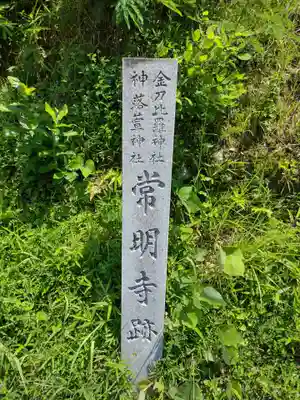 金刀比羅神社
神落萱神社
常明寺跡